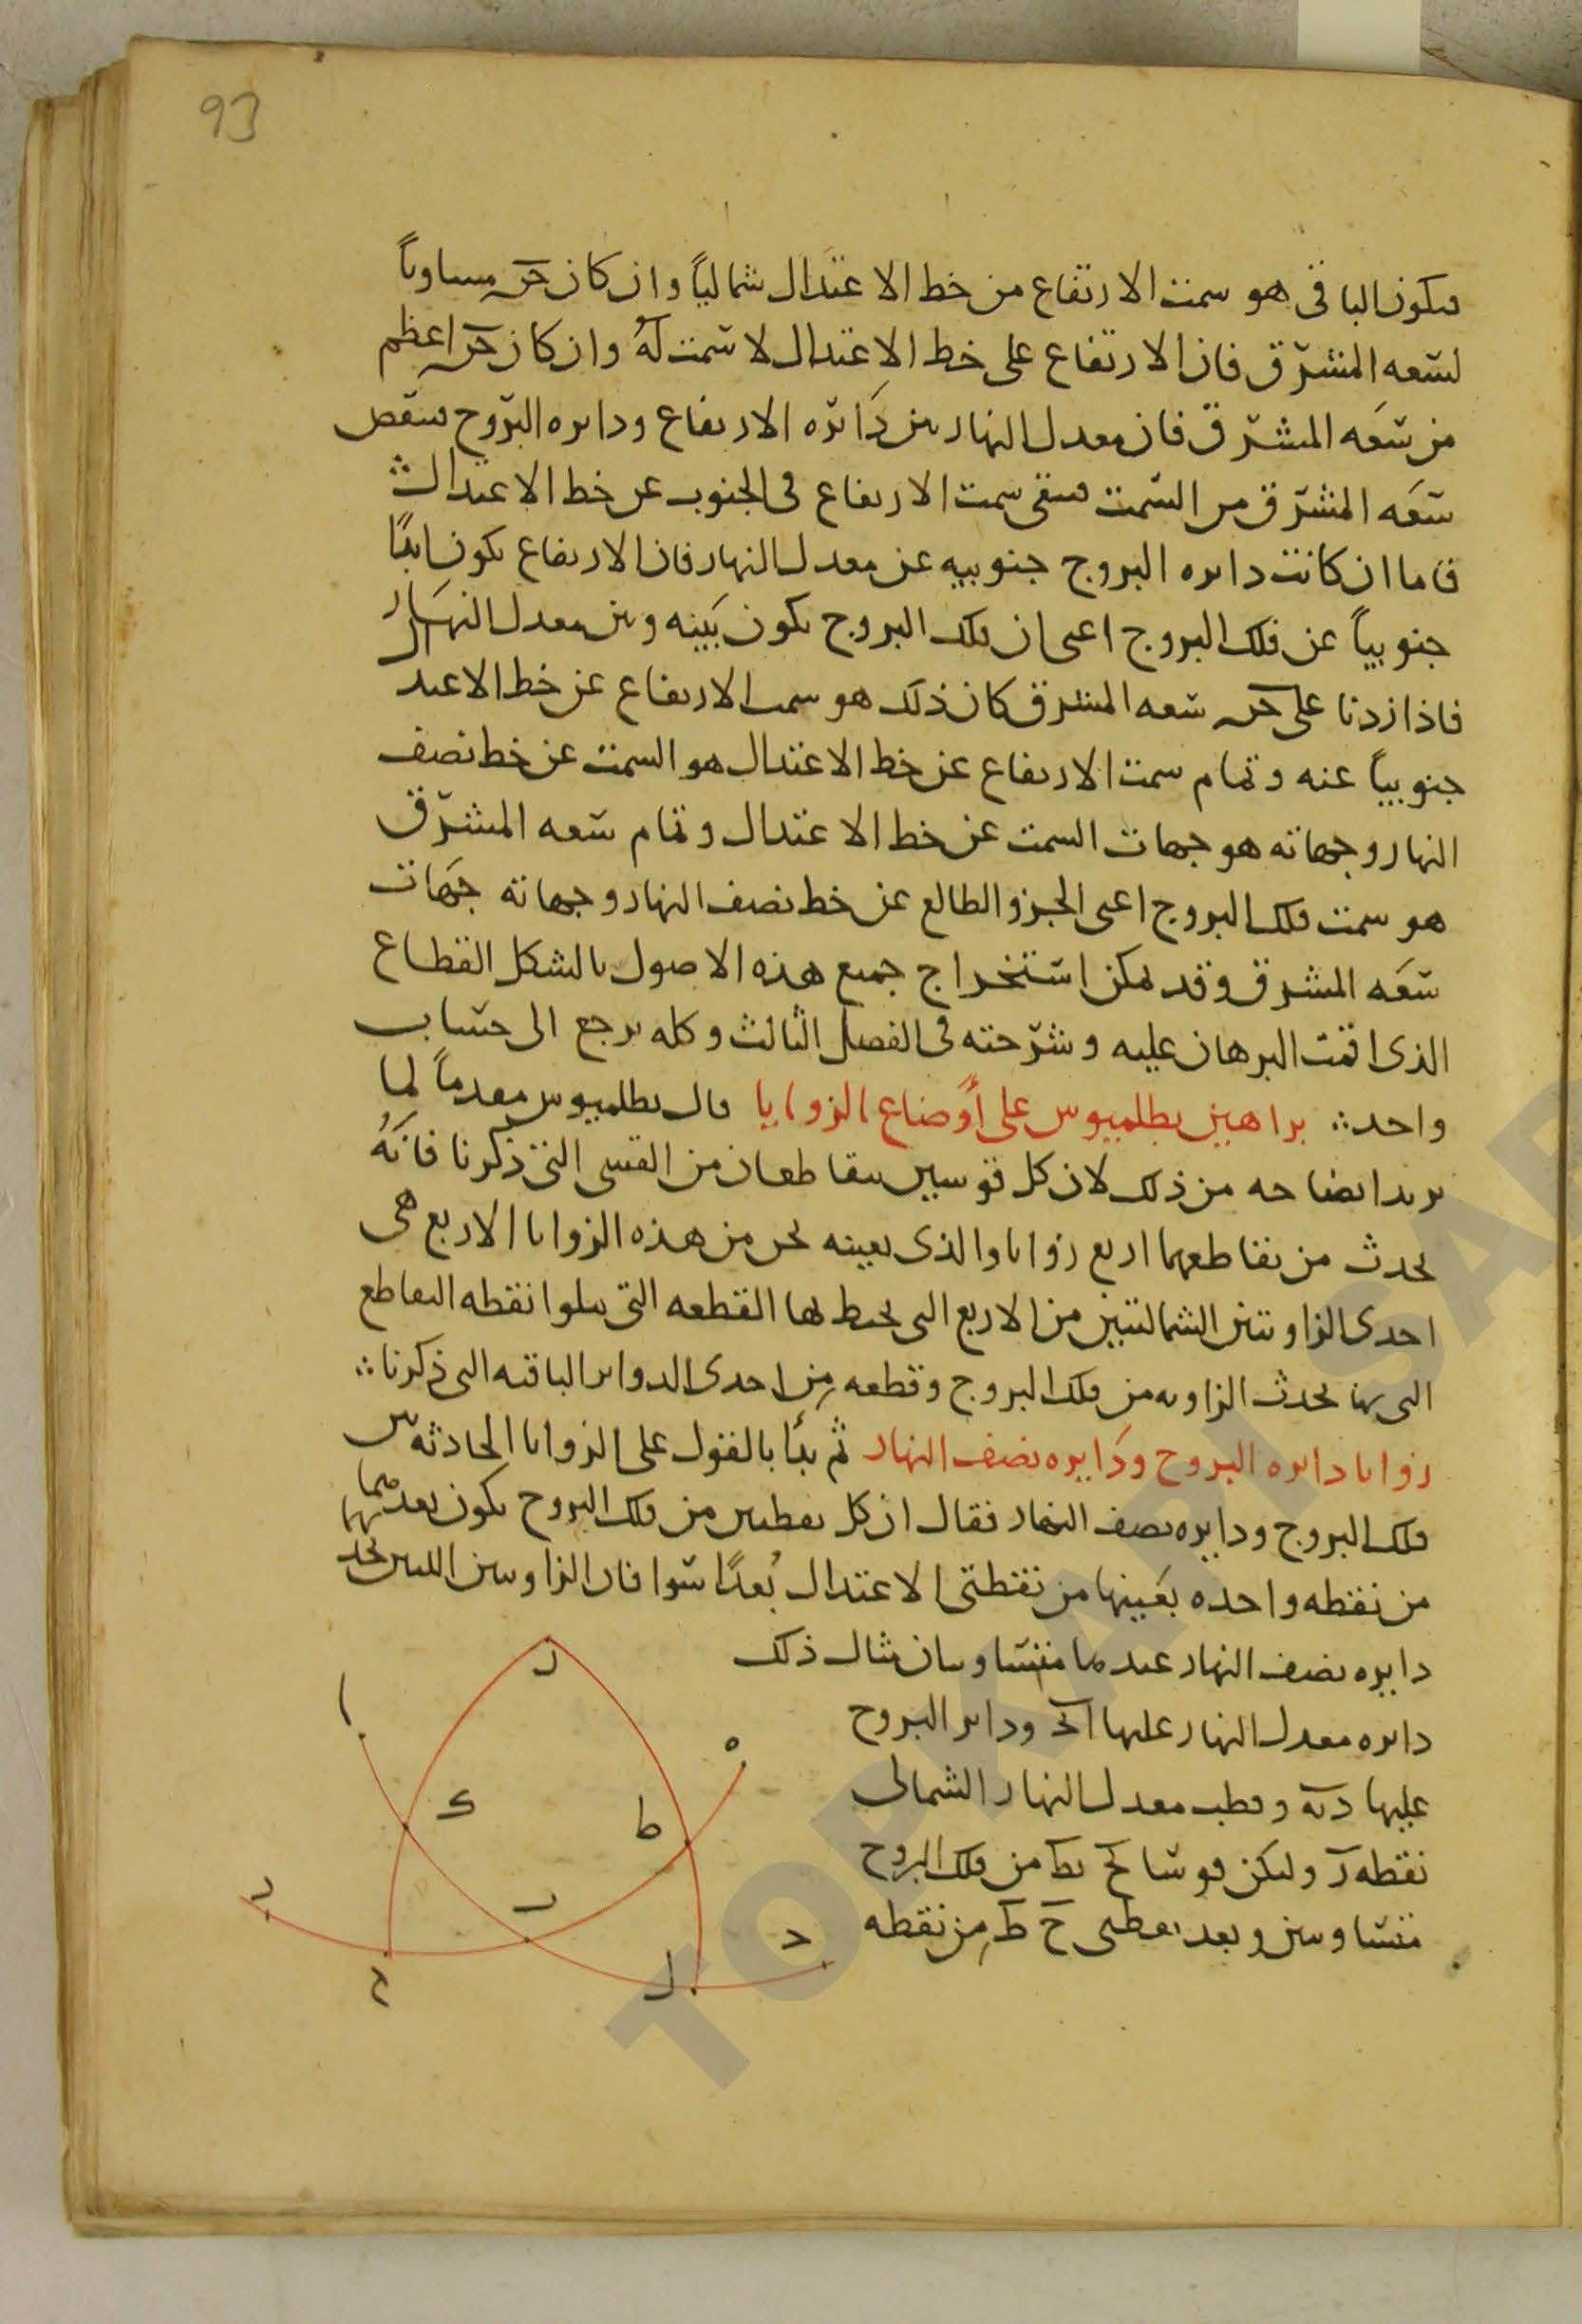 93
فيكون الباقى هو سمت الارتفاع من خط الاعتدال شمالياً وان كان حه مساوياً
لسعه المشرق فان الارتفاع على خط الاعتدال لا سمت له وان كان حه اعظم
من سعه المشرق فان معدل النهار بين دائره الارتفاع ودايره البروج فينقص
سعه المشرق من السمت فيبقى سمت الارتفاع فى الجنوب عن خط الاعتدال
فاما ان كانت دايره البروج جنوبيه عن معدل النهار فان الارتفاع يكون ابداً
جنوبياً عن فلك البروج اعنى ان فلك البروج يكون بينه وبين معدل النهار
فاذا زدنا على حه سعه المشرق كان ذلك هو سمت الارتفاع عن خط الاعتدال
جنوبياً عنه وتمام سمت الارتفاع عن خط الاعتدال هو السمت عن خط نصف
النهار وجهاته هو جهات السمت عن خط الاعتدال وتمام سعه المشرق
هو سمت فلك البروج اعنى الجزو الطالع عن خط نصف النهار وجهاته جهات
سعه المشرق وقد يمكن استخراج جميع هذه الاصول بالشكل القطاع
الذى اقمت البرهان عليه وشرحته فى الفصل الثالث وكله يرجع الى حساب
واحد ؞ براهين بطلميوس على أوضاع الزوايا قال بطلميوس مقدماً لما
يريد ايضاحه من ذلك لان كل قوسين يتقاطعان من القسى التى ذكرنا فانه
يحدث من تقاطعهما اربع زوايا والذى يعينه نحن من هذه الزوايا الاربع هى
احدى الزاويتين الشماليتين من الاربع التى يحيط بها القطعه التى يتلوا نقطه التقاطع
التى بها يحدث الزاويه من فلك البروج وقطعه من احدى الدواير الباقيه التى ذكرنا ؞
زوايا دايره البروج ودايره نصف النهار ثم بدأ بالقول على الزوايا الحادثه بين
فلك البروج ودايره نصف النهار فقال ان كل نقطتين من فلك البروج يكون بعدهما
من نقطه واحده بعينها من نقطتى الاعتدال بُعداً سوا فان الزاويتين اللتين تحدثهما
دايره نصف النهار عندهما متساويتان مثال ذلك
دايره معدل النهار عليها ابج وداير البروج
عليها دبه وقطب معدل النهار الشمالى
نقطه ز وليكن قوسا بح بط من فلك البروج
متساويتين وبعد نقطتى ح ط من نقطه
ز
ا
ه
ك
ط
د
ب
ج
ح
ل
TOPKAPI SAR